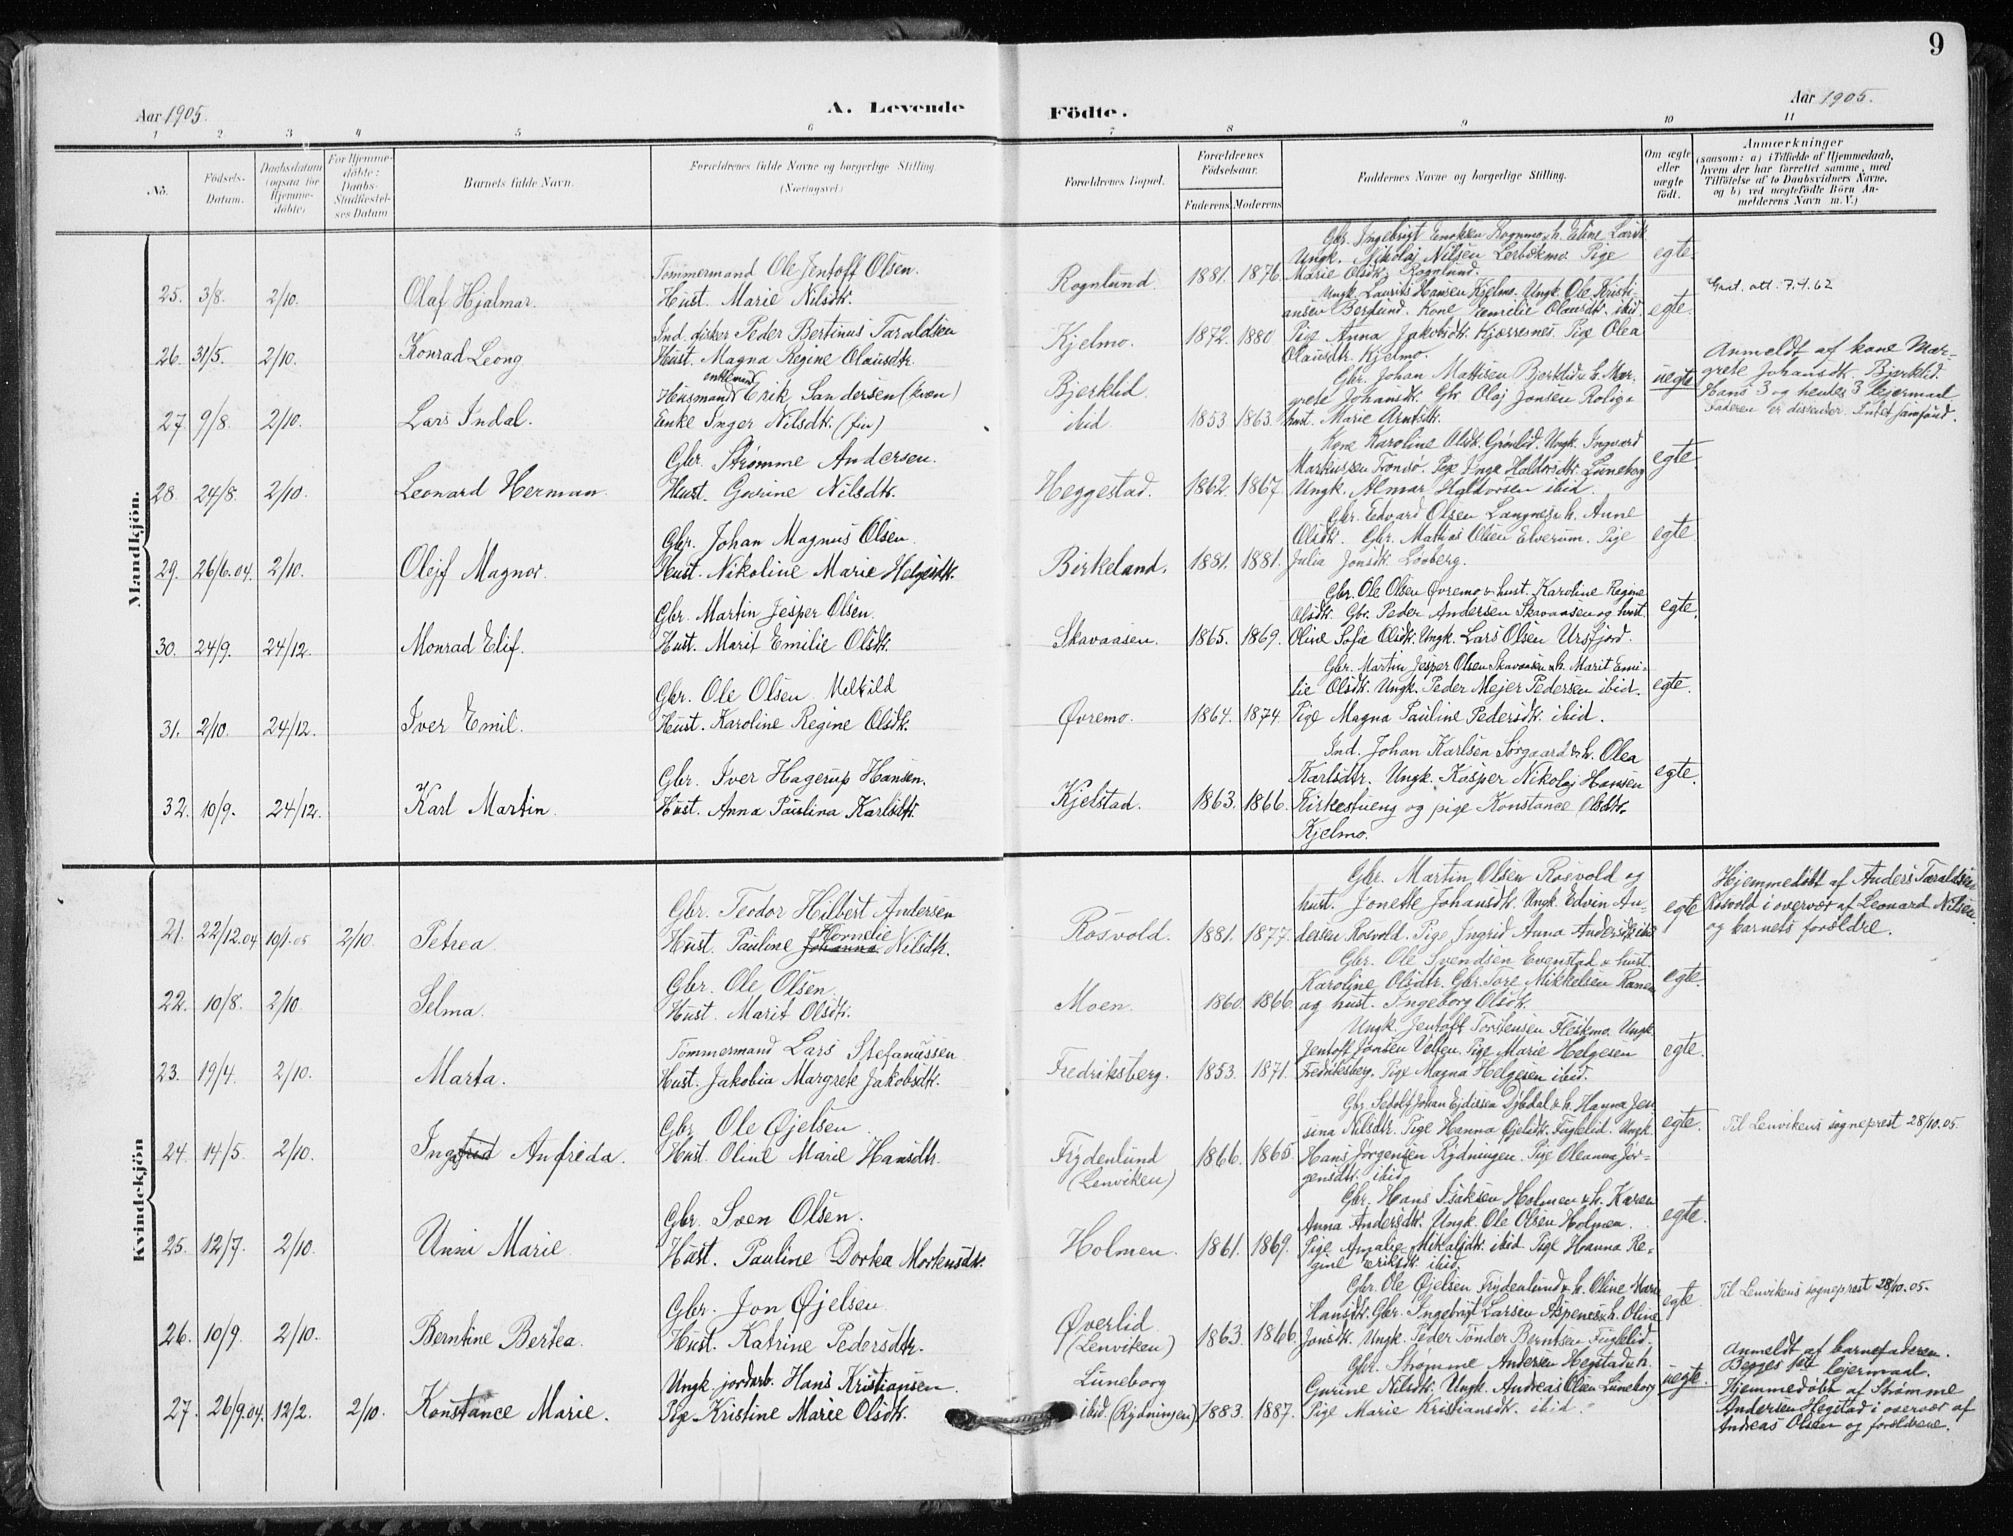 9
Aar 1905.
A. Levende Födte.
Aar 1905.
1 2 3 4 5 6 7 8 9 10 11
No.
Födsels-Datum.
Daabsdatum (ogsaa for Hjemme-döbte)
For Hjemme-döbte: Daabs-Stadfæstel-ses Datum
Barnets fulde Navn.
Forældrenes fulde Navne og borgerlige Stilling (Næringsvei)
Forældrenes Bopæl.
Forældrenes Födselsaar.
Faderens Moderens
Faddernes Navne og borgerlige Stilling.
Om ægte eller uægte födt.
Anmærkninger
(saasom: a) i Tilfælde af Hjemmedaab,
hvem der har forrettet samme, med
Tilföielse af to Daabsvidners Navne,
og b) ved uægtefödte Börn An-
melderens Navn m.V.)
Mandkjön.
25. 3/8. 2/10. Olaf Hjalmar.
Tømmermand Ole Jentoft Olsen.
Hust. Marie Nilsdtr.
Rognlund. 1881. 1876.
Gbr. Ingebrigt Enoksen Rognmo & h. Eline Larsdtr.
Ungk. Nikolaj Nilsen Lerbekmo. Pige
Marie Olsdtr. Rognlund.
egte.
Graf. att. 7.9.62
26. 31/5. 2/10. Konrad Leong
Ind. fisker Peder Bertinus Taraldsen
Hust. Magna Regine Olausdtr.
Kjelmo. 1872. 1880
Ungk. Laurits Hansen Kjelmo. Ungk. Ole Kristi-
ansen Berglund. Kone Emelie Olausdtr. ibid.
Pige Anna Jakobsdtr. Kjærresnes. Pige Olea
Olausdtr. Kjelmo.
egte.
27. 9/8. 2/10. Lars Indal.
enkemand
Husmand Erik Sandersen (kvæn)
Enke Inger Nilsdtr. (fin)
Bjerklid
ibid. 1853. 1863.
Gbr. Johan Mattisen Bjerklid & h. Mar-
grete Johansdtr. Gbr. Olaj Jonsen Rolig &
hust. Marie Arntsdtr.
uegte
Anmeldt af kone Mar-
grete Johansdtr. Bjerklid.
Hans 3 og hendes 3 lejermaal
Faderen er dissenter. Intet samfund.
28. 24/8. 2/10. Leonard Herman.
Gbr. Strømme Andersen.
Hust. Gurine Nilsdtr.
Heggestad. 1862. 1867.
Kone Karoline Olsdtr. Grønlid. Ungk. Ingvard
Markussen Tromsø. Pige Inga Haldorsdtr. Luneborg
Ungk. Almar Haldorsen ibid.
egte.
29. 26/6.04. 2/10. Olejf Magnor.
Gbr. Johan Magnus Olsen.
Hust. Nikoline Marie Helgesdtr.
Birkeland. 1881. 1881.
Gbr. Edvard Olsen Langnes & h. Anne
Olsdtr. Gbr. Mathias Olsen Elverum. Pige
Julia Jonsdtr. Løvberg.
egte.
30. 24/9. 24/12. Monrad Elif.
Gbr. Martin Jesper Olsen.
Hust. Marit Emilie Olsdtr.
Skavaasen. 1865. 1869.
Gbr. Ole Olsen Øvremo & hust. Karoline Regine
Olsdtr. Gbr. Peder Andersen Skavaasen og hust.
Oline Sofie Olsdtr. Ungk. Lars Olsen Ursfjord.
egte.
31. 2/10. 24/12. Iver Emil.
Gbr. Ole Olsen Melkild
Hust. Karoline Regine Olsdtr.
Øvremo. 1864. 1874.
Gbr. Martin Jesper Olsen Skavaasen & h. Marit Emi-
lie Olsdtr. Ungk. Peder Mejer Pedersen ibid.
Pige Magna Pauline Pedersdtr. ibid.
egte.
32. 10/9. 24/12. Karl Martin.
Gbr. Iver Hagerup Hansen.
Hust. Anna Paulina Karlsdtr.
Kjelstad. 1863. 1866.
Ind. Johan Karlsen Sørgaard & h. Olea
Karlsdtr. Ungk. Kasper Nikolaj Hansen
Kirkesfueng og pige Konstance Olsdtr.
Kjelmo.
egte.
Kvindekjön
21. 22/12.04 10/1.05 2/10. Petrea
Gbr. Teodor Hilbert Andersen
Hornelie
Hust. Pauline Johanna Nilsdtr.
Rosvold. 1881. 1877.
Gbr. Martin Olsen Rosvold og
hust. Jonette Johansdtr. Ungk. Edvin An-
dersen Rosvold. Pige Ingrid Anna Andersdtr. ibid
egte
Hjemmedøbt af Anders Taraldsen
Rosvold i overvær af Leonard Nilsen
og barnets forældre.
22. 10/8. 2/10. Selma.
Gbr. Ole Olsen.
Hust. Marit Olsdtr.
Moen. 1860. 1866.
Gbr. Ole Svendsen Evenstad & hust.
Karoline Olsdtr. Gbr. Tore Mikkelsen Ramen
og hust. Ingeborg Olsdtr.
egte.
23. 19/4. 2/10. Marta.
Tømmermand Lars Stefanussen
Hust. Jakobia Margrete Jakobsdtr.
Fredriksberg. 1853. 1871.
Ungk. Jentoft Torstensen Fleskmo. Ungk.
Jentoft Jonsen Velten. Pige Marie Helgesen
Fredriksberg. Pige Magna Helgesen ibid.
egte.
24. 14/5. 2/10. Ingfrid Anfreda.
Gbr. Ole Øjelsen
Hust. Oline Marie Hansdtr.
Frydenlund
(Lenviken) 1866. 1865.
Gbr. Sedolf Johan Ejdissen Dybdal & h. Hanna Jen-
sina Nilsdtr. Pige Hanna Øjelsdtr. Fuglelid. Ungk.
Hans Jørgensen Rydningen. Pige Oleanna Jør-
gensdtr. ibid.
egte.
Til Lenvikens sogneprest 28/10.05.
25. 12/7. 2/10. Unni Marie.
Gbr. Sven Olsen.
Hust. Pauline Dorkea Mortensdtr.
Holmen. 1861. 1869.
Gbr. Hans Isaksen Holmen & h. Karen
Anna Andersdtr. Ungk. Ole Olsen Holmen.
Pige Amalie Mikalsdtr. ibid. Pige Hanna Re-
gine Eriksdtr. ibid.
egte.
26. 10/9. 2/10. Berntine Bertea.
Gbr. Jon Øjelsen
Hust. Katrine Pedersdtr.
Øverlid
(Lenviken) 1863. 1866.
Gbr. Ole Øjelsen Frydenlund & h. Oline Marie
Hansdtr. Gbr. Ingebrigt Larsen Aspenes & h. Oline
Jonsdtr. Ungk. Peder Tønder Berntsen Fuglelid.
egte.
Til Lenvikens sogneprest 28/10.05.
27. 26/9.04. 12/2. 2/10. Konstance Marie.
Ungk. jordarb. Hans Kristiansen.
Pige Kristine Marie Olsdtr.
Luneborg
ibid. (Rydningen) 1883. 1887.
Gbr. Strømme Andersen Hegstad & h.
Gurine Nilsdtr. Ungk. Andreas Olsen Luneborg
Pige Marie Kristiansdtr. ibid.
uegte.
Anmeldt af barnefaderen.
Begges 1ste lejermaal.
Hjemmedøbt af Strømme
Andersen Hegstad i overvær af
Andreas Olsen og forældrene.